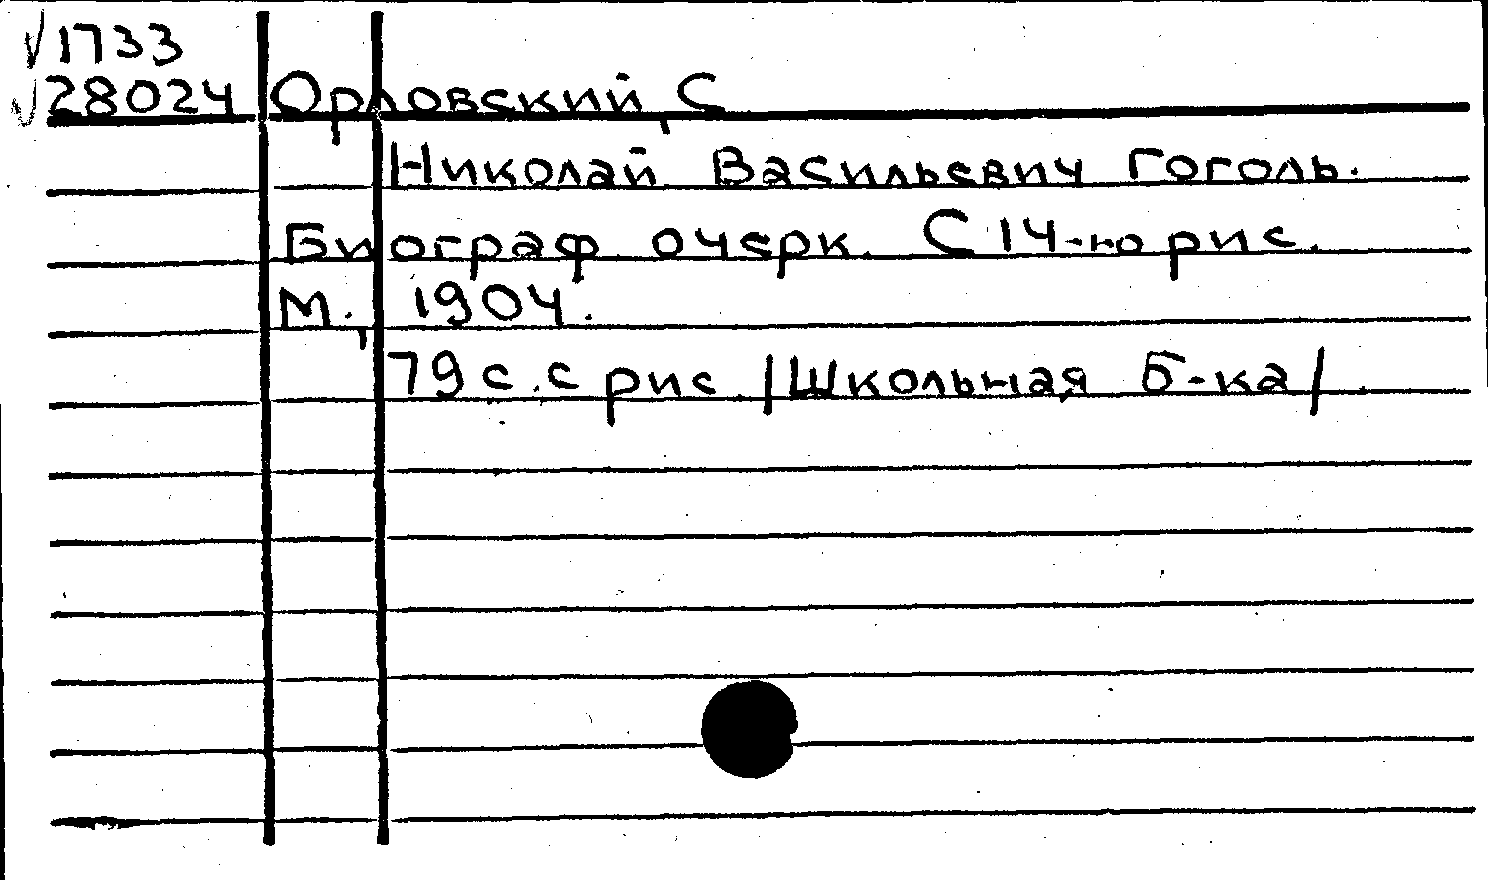 √1733
√28024 Орловский, С
Николай Васильевич Гоголь.
Биограф. очерк. С 14-ю рис.
М., 1904.
79 с. с рис. /Школьная б-ка/.